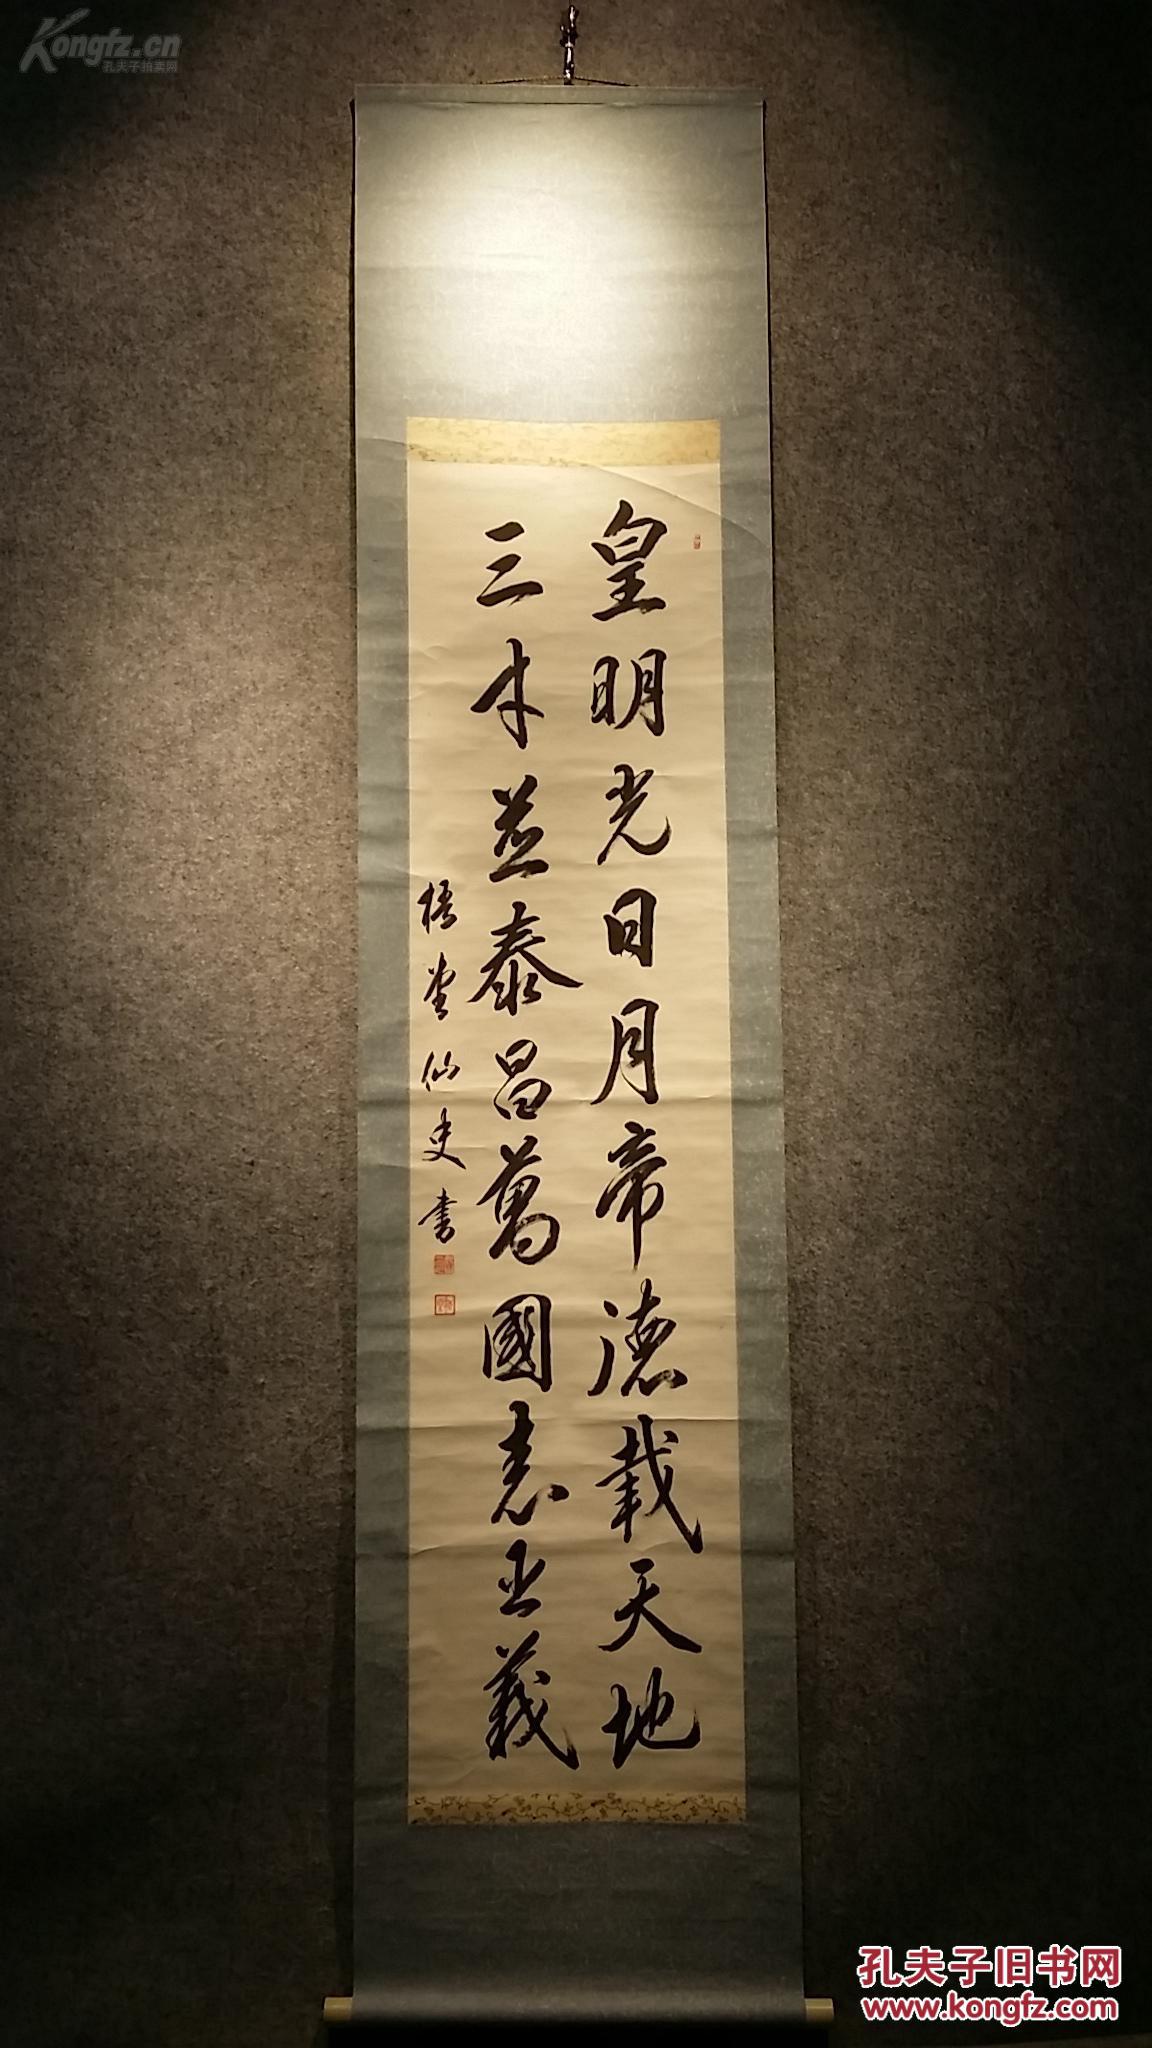 Kongfz.cn
孔夫子拍卖网
皇明光日月帝德載天地
三才並泰昌萬國表臣義
梧堂仙史書
孔夫子旧书网
www.kongfz.com